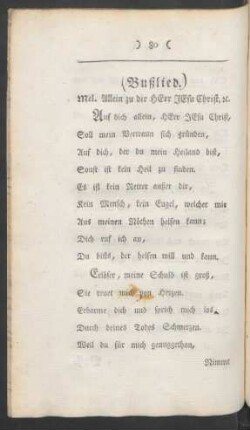 ) 80 (
(Bußlied.)
Mel. Allein zu dir HErr JEsu Christ, ꝛc.
Auf dich allein, HErr JEsu Christ,
Soll mein Vertraun sich gründen,
Auf dich, der du mein Heiland bist,
Sonst ist kein Heil zu finden.
Es ist kein Retter außer dir,
Kein Mensch, kein Engel, welcher mir
Aus meinen Nöthen helfen kann;
Dich ruf ich an,
Du bists, der helfen will und kann.
Erlöser, meine Schuld ist groß,
Sie reuet mich von Herzen.
Erbarme dich und sprich mich los
Durch deines Todes Schmerzen.
Weil du für mich genuggethan,
Nimmt